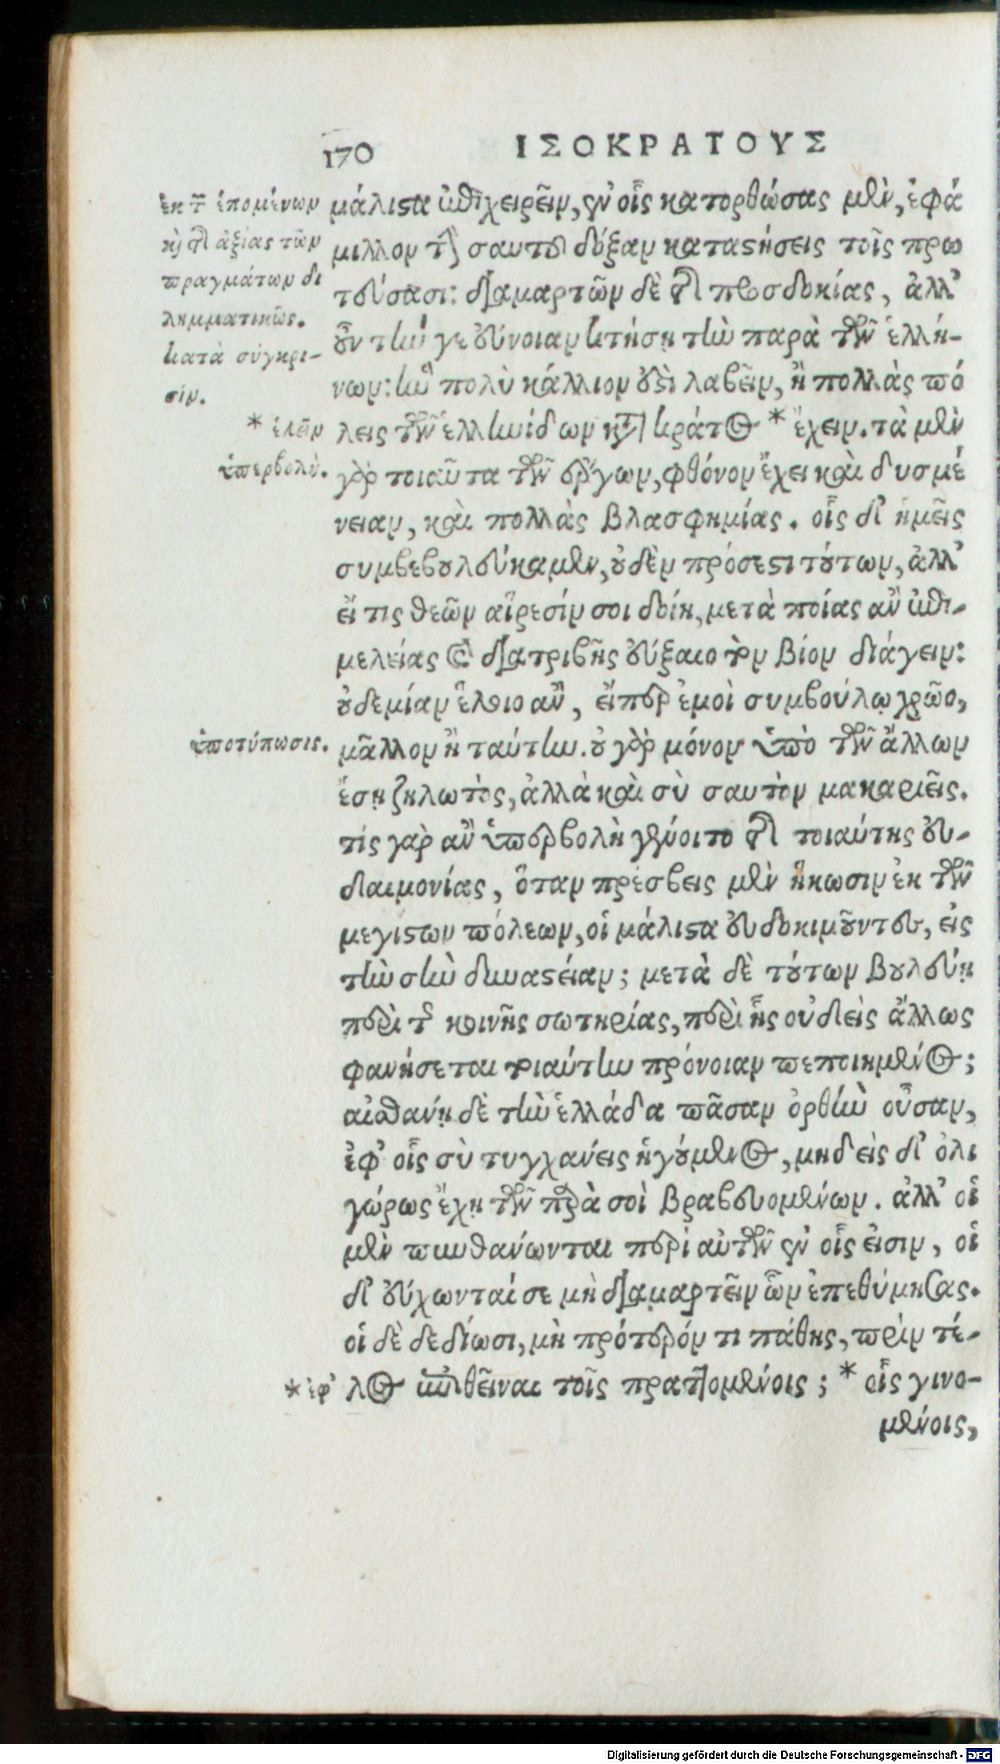 170 ΙΣΟΚΡΑΤΟΥΣ
ἐκ τῶν ἑπομένων
καὶ τῆς ἀξίας τῶν
πραγμάτων δι
λημματικῶς.
κατὰ σύγκρι-
σιν.
* ἑλεῖν
ὑπερβολὴ.
ὑποτύπωσις.
* ἐφ'
μάλιστα ἐπιχειρεῖν, ἐν οἷς κατορθώσας μὲν, ἐφά
μιλλον τὴν σαυτοῦ δόξαν καταστήσεις τοῖς πρω
τεύσασι: διαμαρτὼν δὲ τῆς προσδοκίας, ἀλλ'
οὖν τὴν γε εὔνοιαν κτήσῃ τὴν παρὰ τῶν ἑλλή-
νων: ἣν πολὺ κάλλιον ἐστὶ λαβεῖν, ἢ πολλὰς πό
λεις τῶν ἑλληνίδων κατὰ κράτος * ἔχειν. τὰ μὲν
γὰρ τοιαῦτα τῶν ἔργων, φθόνον ἔχει καὶ δυσμέ
νειαν, καὶ πολλὰς βλασφημίας. οἷς δ' ἡμεῖς
συμβεβουλεύκαμεν, οὐδὲν πρόσεστι τούτων, ἀλλ'
εἴ τις θεῶν αἵρεσίν σοι δοίη, μετὰ ποίας ἂν ἐπι-
μελείας καὶ διατριβῆς εὔξαιο τὸν βίον διάγειν:
οὐδεμίαν ἕλοιο ἂν, εἴπερ ἐμοὶ συμβούλῳ χρῷο,
μᾶλλον ἢ ταύτην. οὐ γὰρ μόνον ὑπὸ τῶν ἄλλων
ἔσῃ ζηλωτὸς, ἀλλὰ καὶ σὺ σαυτὸν μακαριεῖς.
τίς γὰρ ἂν ὑπερβολὴ γένοιτο τῆς τοιαύτης εὐ-
δαιμονίας, ὅταν πρέσβεις μὲν ἥκωσιν ἐκ τῶν
μεγίστων πόλεων, οἱ μάλιστα εὐδοκιμοῦντες, εἰς
τὴν σὴν δυναστείαν; μετὰ δὲ τούτων βουλεύῃ
περὶ τῆς κοινῆς σωτηρίας, περὶ ἧς οὐδεὶς ἄλλως
φανήσεται τοιαύτην πρόνοιαν πεποιημένος;
αἰσθάνῃ δὲ τὴν ἑλλάδα πᾶσαν ὀρθὴν οὖσαν,
ἐφ' οἷς σὺ τυγχάνεις ἡγούμενος, μηδεὶς δ' ὀλι
γώρως ἔχῃ τῶν παρὰ σοὶ βραβευομένων. ἀλλ' οἱ
μὲν πυνθάνωνται περὶ αὐτῶν ἐν οἷς εἰσιν, οἱ
δ' εὔχωνταί σε μὴ διαμαρτεῖν ὧν ἐπεθύμησας.
οἱ δὲ δεδίωσι, μὴ πρότερόν τι πάθῃς, πρὶν τέ-
λος ἐπιθεῖναι τοῖς πραττομένοις; * οἷς γινο-
μένοις,
Digitalisierung gefördert durch die Deutsche Forschungsgemeinschaft - DFG